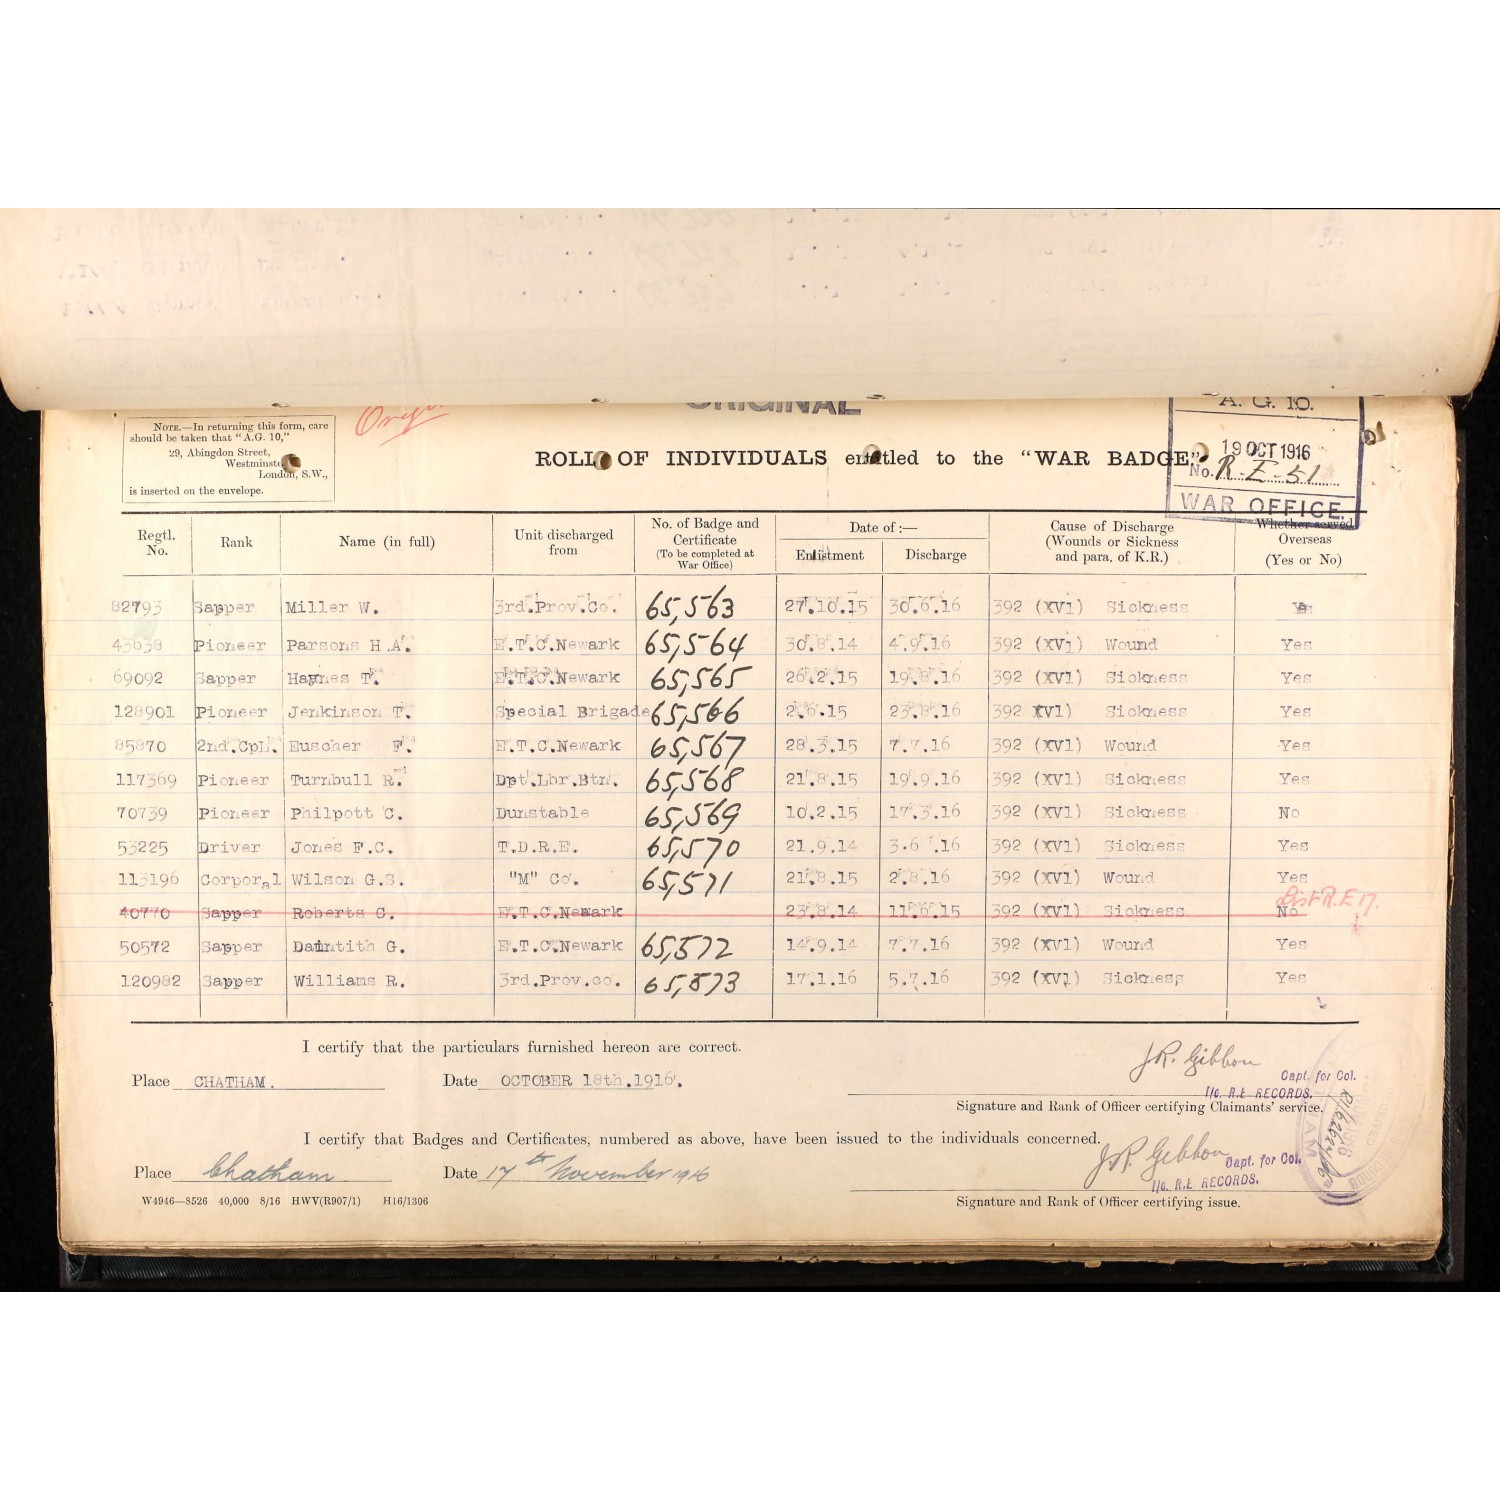 ORIGINAL
A. G. 10.
NOTE.—In returning this form, care
should be taken that "A.G. 10,"
29, Abingdon Street,
Westminster
London, S.W.,
is inserted on the envelope.
ROLL OF INDIVIDUALS entitled to the "WAR BADGE".
19 OCT 1916
No. R.E-51
WAR OFFICE.
Regtl. No. Rank Name (in full) Unit discharged from No. of Badge and Certificate (To be completed at War Office) Date of :— Enlistment Discharge Cause of Discharge (Wounds or Sickness and para. of K.R.) Whether served Overseas (Yes or No)
82793 Sapper Miller W. 3rd.Prov.Co. 65,563 27.10.15 30.6.16 392 (XV1) Sickness
43638 Pioneer Parsons H.A. E.T.C.Newark 65,564 30.8.14 4.9.16 392 (XV1) Wound Yes
69092 Sapper Haynes T. E.T.C.Newark 65,565 26.2.15 19.8.16 392 (XV1) Sickness Yes
128901 Pioneer Jenkinson T. Special Brigade 65,566 2.6.15 23.8.16 392 XV1) Sickness Yes
85870 2nd.CpL. Euscher F. E.T.C.Newark 65,567 28.3.15 7.7.16 392 (XV1) Wound Yes
117369 Pioneer Turnbull R. Dpt.Lbr.Btn. 65,568 21.8.15 19.9.16 392 (XV1) Sickness Yes
70739 Pioneer Philpott C. Dunstable 65,569 10.2.15 17.3.16 392 (XV1) Sickness No
53225 Driver Jones F.C. T.D.R.E. 65,570 21.9.14 3.6.16 392 (XV1) Sickness Yes
113196 Corporal Wilson G.S. "M" Co. 65,571 21.8.15 2.8.16 392 (XV1) Wound Yes
List R.E 17.
40770 Sapper Roberts C. E.T.C.Newark 23.8.14 11.6.15 392 (XV1) Sickness No
50572 Sapper Daintith G. E.T.C.Newark 65,572 14.9.14 7.7.16 392 (XV1) Wound Yes
120982 Sapper Williams R. 3rd.Prov.co. 65,573 17.1.16 5.7.16 392 (XV1) Sickness Yes
I certify that the particulars furnished hereon are correct.
J.R. Gibbon
Capt. for Col.
Place CHATHAM. Date OCTOBER 18th.1916.
I/c. R.E RECORDS.
Signature and Rank of Officer certifying Claimants' service.
I certify that Badges and Certificates, numbered as above, have been issued to the individuals concerned.
J.R. Gibbon Capt. for Col.
Place Chatham Date 17th November 1916
I/c. R.E RECORDS.
W4946—8526 40,000 8/16 HWV(R907/1) H16/1306
Signature and Rank of Officer certifying issue.